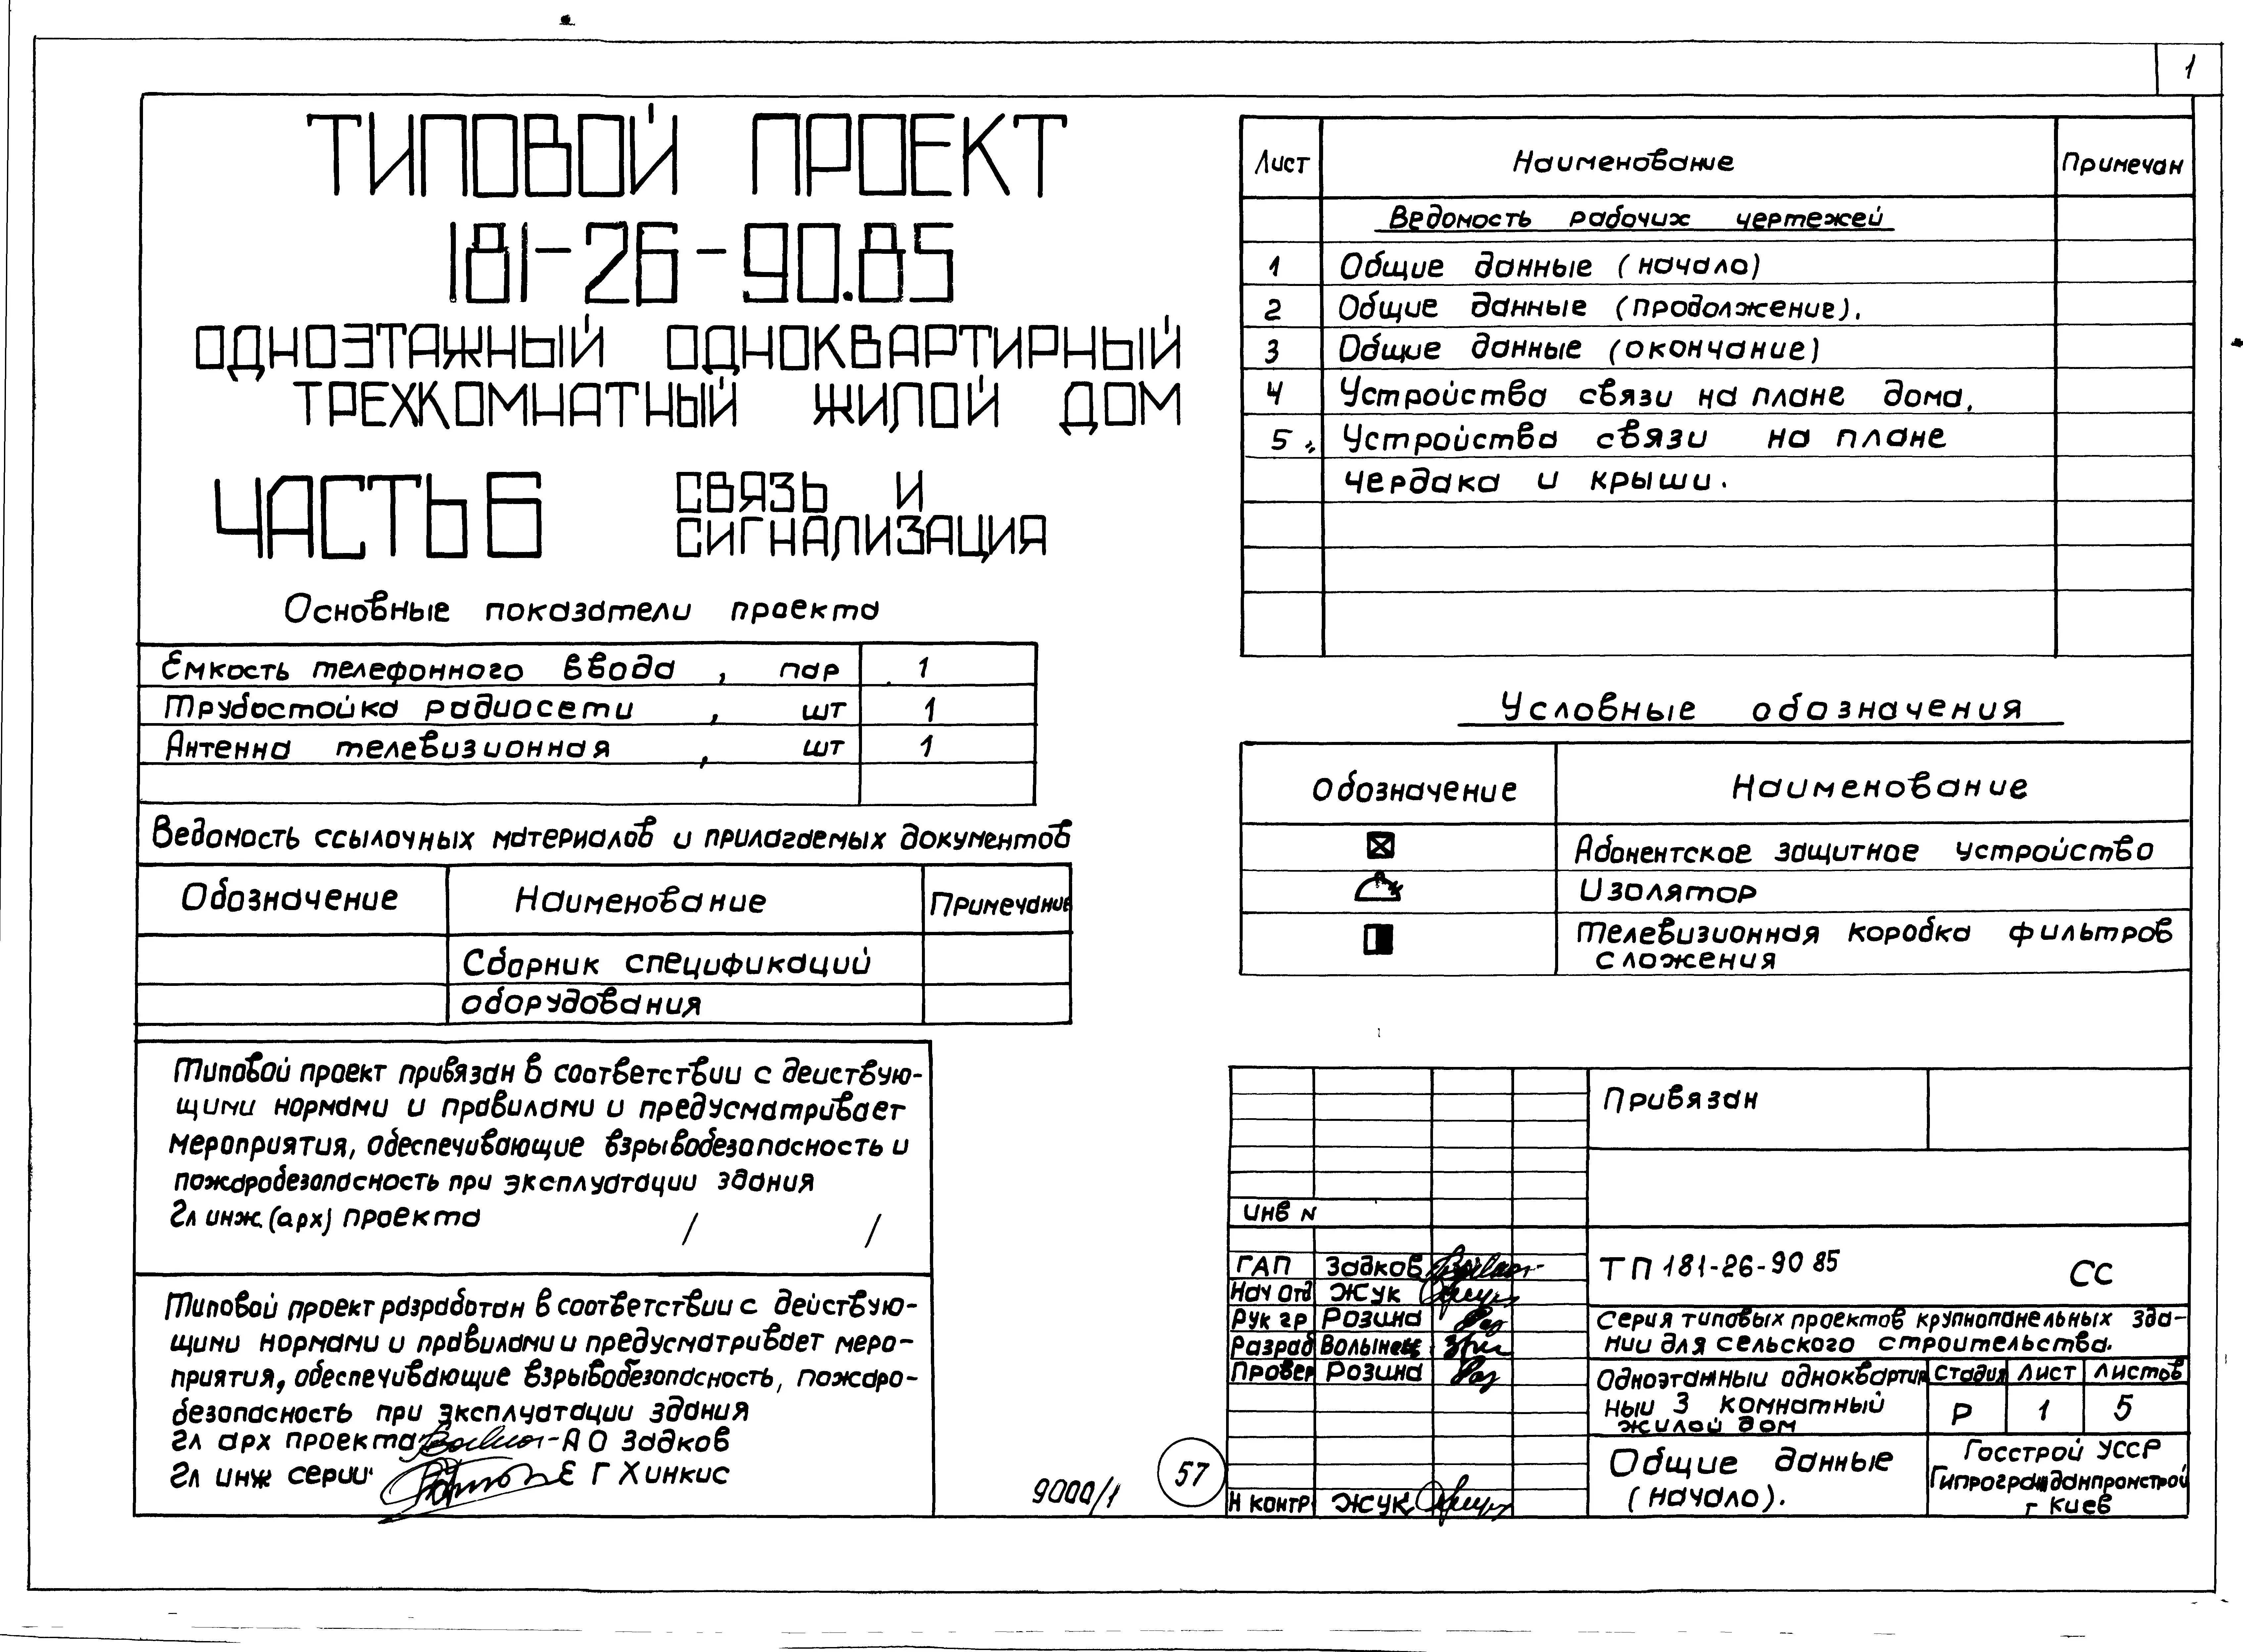 1
ТИПОВОЙ ПРОЕКТ
181-26-90.85
ОДНОЭТАЖНЫЙ ОДНОКВАРТИРНЫЙ
ТРЕХКОМНАТНЫЙ ЖИЛОЙ ДОМ
ЧАСТЬ 6 СВЯЗЬ И
СИГНАЛИЗАЦИЯ
Основные показатели проекта
Емкость телефонного ввода, пар 1
Трубостойка радиосети, шт 1
Антенна телевизионная, шт 1
Ведомость ссылочных материалов и прилагаемых документов
Обозначение Наименование Примечание
Сборник спецификаций
оборудования
Типовой проект привязан в соответствии с деиствую-
щими нормами и правилами и предусматривает
мероприятия, обеспечивающие взрывобезопасность и
пожаробезопасность при эксплуатации здания
Гл инж. (арх) проекта / /
Типовой проект разработан в соответствии с действую-
щими нормами и правилами и предусматривает меро-
приятия, обеспечивающие взрывобезопасность, пожаро-
безопасность при эксплуатации здания
Гл арх проекта А О Задков
Гл инж серии Е Г Хинкис
Лист Наименование Примечан
Ведомость рабочих чертежей
1 Общие данные (начало)
2 Общие данные (продолжение).
3 Общие данные (окончание)
4 Устройства связи на плане дома.
5 Устройства связи на плане
чердака и крыши.
Условные обозначения
Обозначение Наименование
Абонентское защитное устройство
Изолятор
Телевизионная коробка фильтров
сложения
Привязан
инв N
ГАП Задков
Нач отд Жук
Рук гр Розина
Разраб Волынец
Провер Розина
Н контр. Жук
ТП 181-26-90 85 СС
Серия типовых проектов крупнопанельных зда-
нии для сельского строительства.
Одноэтажныи одноквартир
ныи 3 комнатный
жилой дом
Стадия Лист Листов
Р 1 5
Общие данные
(начало).
Госстрой УССР
Гипрогражданпромстрой
г Киев
9000/1
57